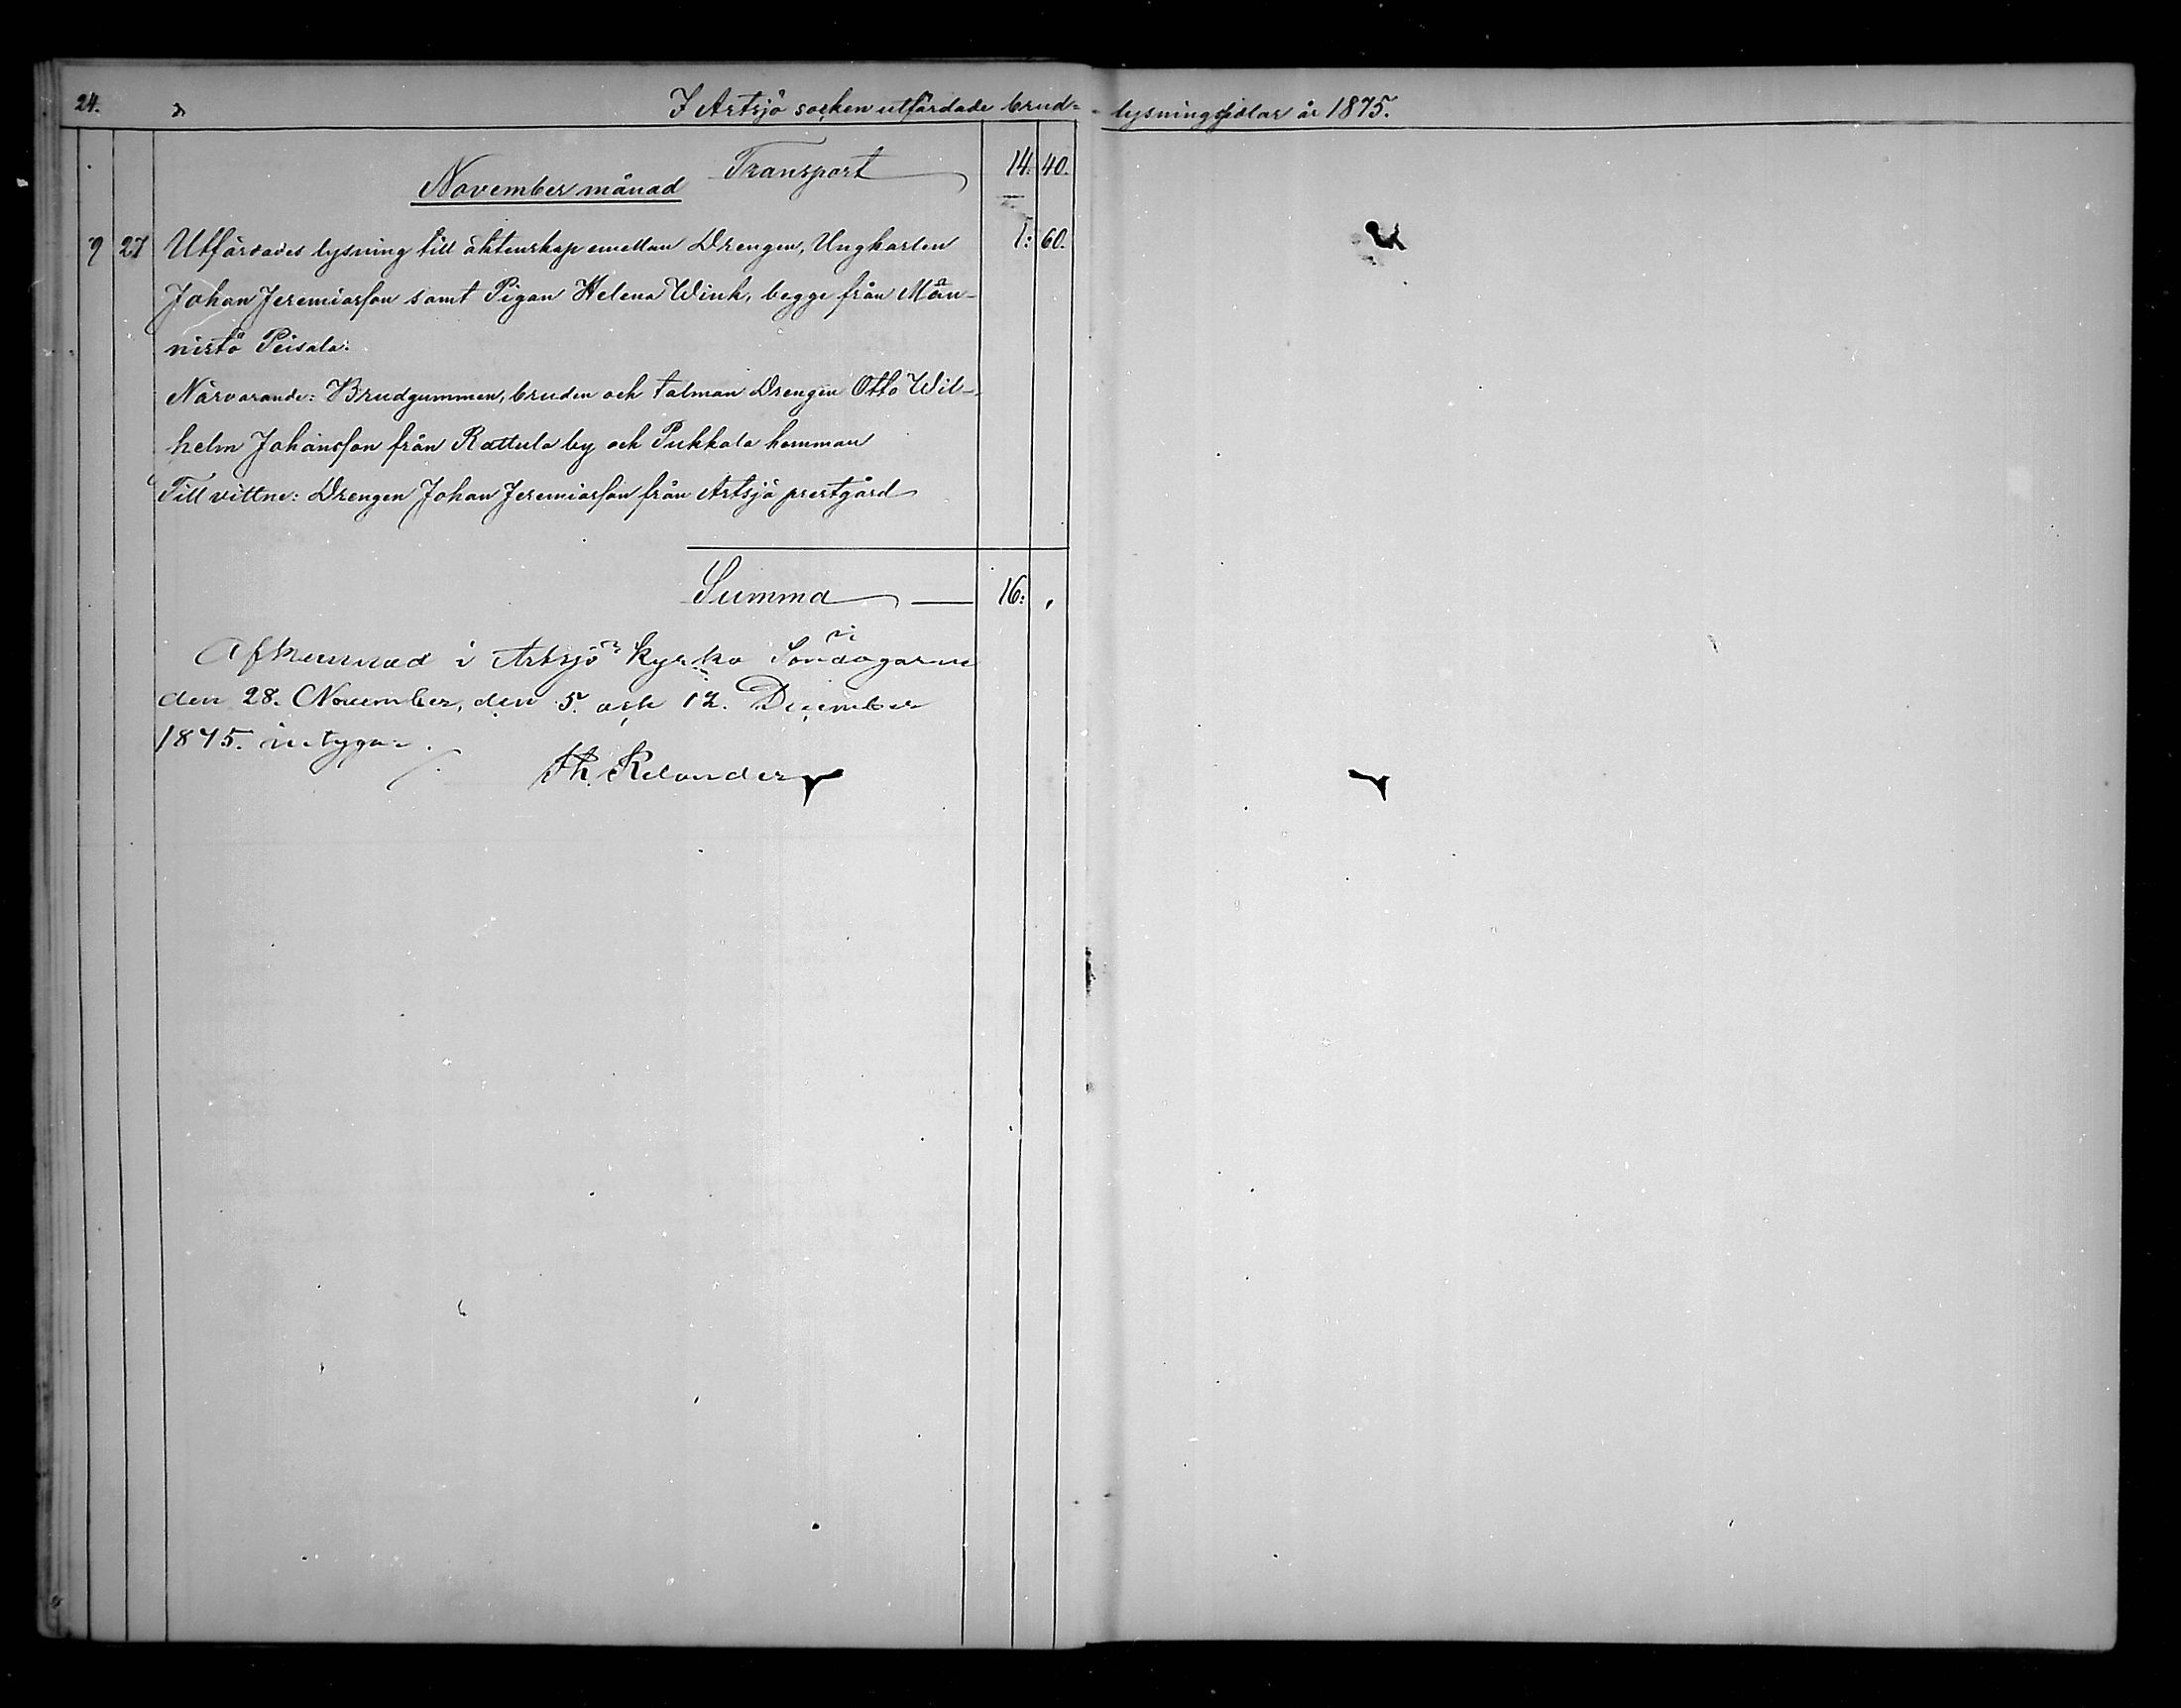 24. I Artsjö socken utfärdade brud= lysningssedlar år 1875.
Transport 14. 40.
November månad
9 27 Utfärdades lysning till äktenskap emellan Drengen, Ungkarlen 1: 60.
Johan Jeremiasson samt Pigan Helena Wink, begge från Män-
nistö Peisala.
Närvarande: Brudgummen, bruden och talman Drengen Otto Wil-
helm Johansson från Rattula by och Pukkala hemman
Till vittne: Drengen Johan Jeremiasson från Artsjö prestgård
Summa 16: ,
Afkunnad i Artsjö kyrka Söndagarne
den 28. November, den 5. och 12. December
1875. intygar.
Th. Relander